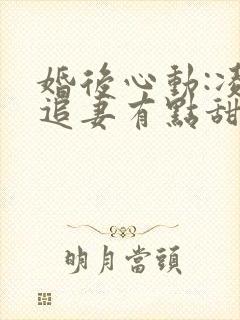 婚後心動:凌
追妻有點甜
明月當頭